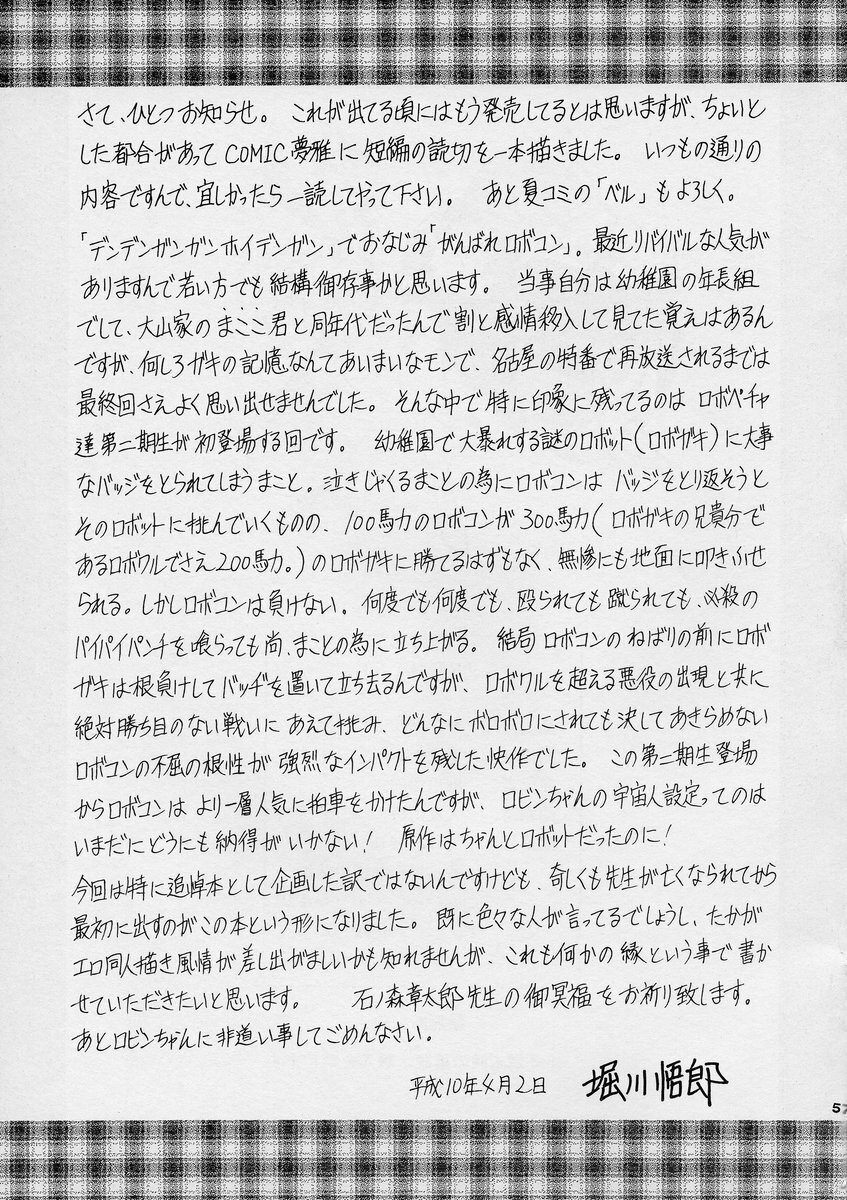 さて、ひとつお知らせ。 これが出てる頃にはもう発売してるとは思いますが、ちょいと
した都合があって COMIC夢雅に短編の読切を一本描きました。 いつもの通りの
内容ですんで、宜しかったら一読してやって下さい。 あと夏コミの「ベル」もよろしく。
「デンデンガンガンホイデンガン」でおなじみ「がんばれロボコン」。最近リバイバルな人気が
ありますんで若い方でも結構御存事かと思います。 当事自分は幼稚園の年長組
でして、大山家のまこと君と同年代だったんで割と感情移入して見てた覚えはあるん
ですが、何しろガキの記憶なんてあいまいなモンで、名古屋の特番で再放送されるまでは
最終回さえよく思い出せませんでした。そんな中で特に印象に残ってるのは ロボペチャ
達第二期生が初登場する回です。 幼稚園で大暴れする謎のロボット(ロボガキ)に大事
なバッジをとられてしまうまこと。泣きじゃくるまことの為にロボコンは バッジをとり返そうと
そのロボットに挑んでいくものの、100馬力のロボコンが300馬力(ロボガキの兄貴分で
あるロボワルでさえ200馬力。)のロボガキに勝てるはずもなく、無惨にも地面に叩きふせ
られる。しかしロボコンは負けない。何度でも何度でも、殴られても蹴られても、必殺の
パイパイパンチを喰らっても尚、まことの為に立ち上がる。 結局ロボコンのねばりの前にロボ
ガキは根負けしてバッヂを置いて立ち去るんですが、ロボワルを超える悪役の出現と共に
絶対勝ち目のない戦いに あえて挑み、どんなにボロボロにされても決してあきらめない
ロボコンの不屈の根性が 強烈なインパクトを残した快作でした。 この第二期生登場
からロボコンは より一層人気に拍車をかけたんですが、ロビンちゃんの宇宙人設定ってのは
いまだにどうにも納得がいかない! 原作はちゃんとロボットだったのに!
今回は特に追悼本として企画した訳ではないんですけども、奇しくも先生が亡くなられてから
最初に出すのがこの本という形になりました。既に色々な人が言ってるでしょうし、たかが
エロ同人描き風情が差し出がましいかも知れませんが、これも何かの縁という事で書か
せていただきたいと思います。 石ノ森章太郎先生の御冥福をお祈り致します。
あとロビンちゃんに非道い事してごめんなさい。
平成10年4月2日 堀川悟郎
57